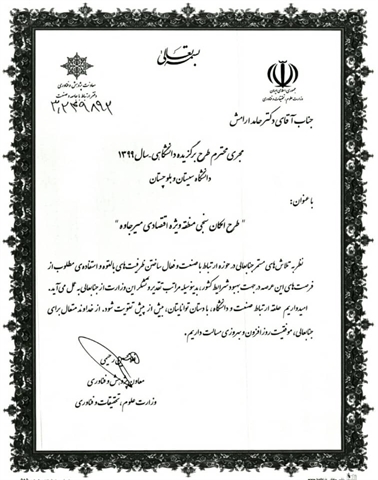 بسمه تعالی
جمهوری اسلامی ایران
وزارت علوم، تحقیقات و فناوری
معاونت پژوهش و فناوری
دفتر ارتباط با جامعه و صنعت
۳,۲۴۹۸۹۲
جناب آقای دکتر حامد آرامش
مجری محترم طرح برگزیده دانشگاهی-سال ۱۳۹۹
دانشگاه سیستان و بلوچستان
با عنوان:
"طرح امکان سنجی منطقه ویژه اقتصادی میرجاوه"
نظر به تلاش‌های مستمر جنابعالی در حوزه ارتباط با صنعت و فعال ساختن ظرفیت‌های بالقوه و استفاده‌ی مطلوب از
فرصت‌های این عرصه در جهت بهبود شرایط کشور، بدینوسیله مراتب تقدیر و تشکر این وزارت از جنابعالی به عمل می‌آید.
امیدواریم حلقه ارتباط صنعت و دانشگاه، با دستان توانایتان، بیش از پیش تقویت شود. از خداوند متعال برای
جنابعالی، موفقیت روزافزون و بهروزی مسالت داریم.
معاون پژوهش و فناوری
وزارت علوم، تحقیقات و فناوری